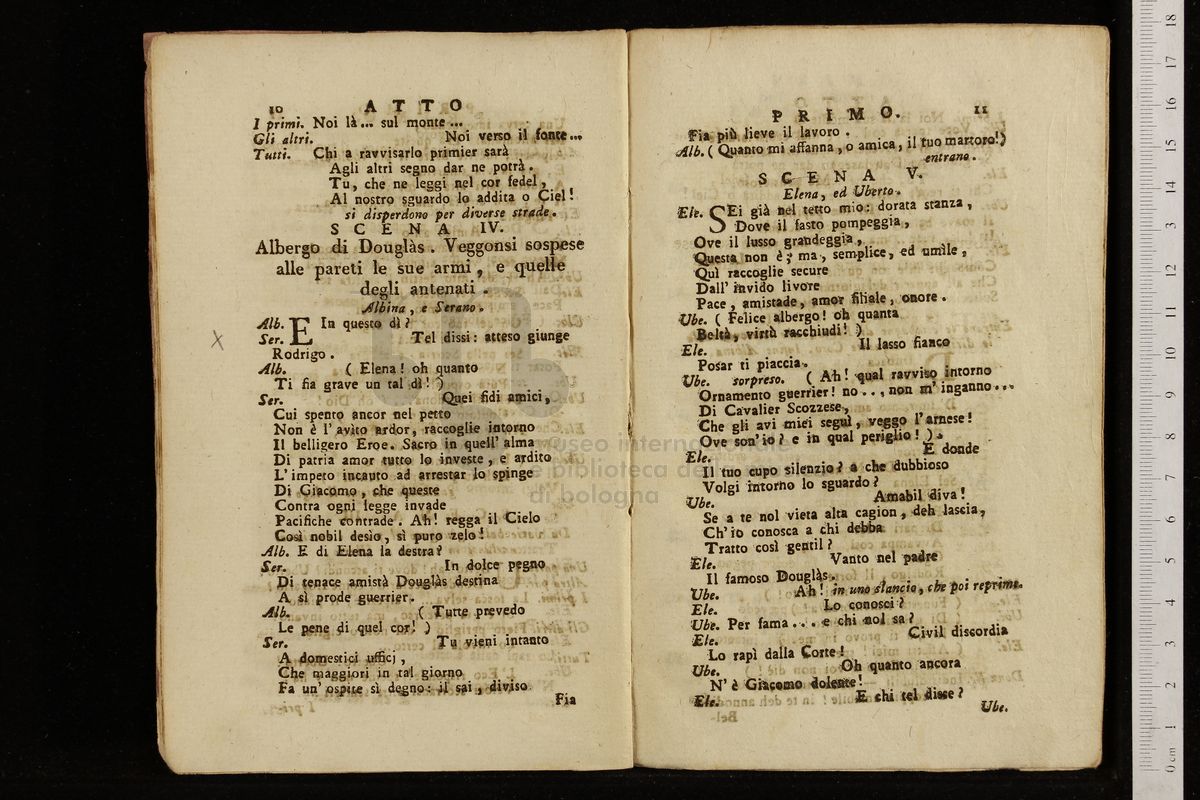 10 ATTO
I primi. Noi là... sul monte...
Gli altri. Noi verso il fonte...
Tutti. Chi a ravvisarlo primier sarà
Agli altri segno dar ne potrà.
Tu, che ne leggi nel cor fedel,
Al nostro sguardo lo addita o Ciel!
si disperdono per diverse strade.
SCENA IV.
Albergo di Douglàs. Veggonsi sospese
alle pareti le sue armi, e quelle
degli antenati.
Albina, e Serano.
Alb. E In questo dì?
Ser. Tel dissi: atteso giunge
Rodrigo.
Alb. ( Elena! oh quanto
Ti fia grave un tal dì! )
Ser. Quei fidi amici,
Cui spento ancor nel petto
Non è l'avìto ardor, raccoglie intorno
Il belligero Eroe. Sacro in quell' alma
Di patria amor tutto lo investe, e ardito
L'impeto incauto ad arrestar lo spinge
Di Giacomo, che queste
Contra ogni legge invade
Pacifiche contrade. Ah! regga il Cielo
Così nobil desìo, sì puro zelo!
Alb. E di Elena la destra?
Ser. In dolce pegno
Di tenace amistà Douglàs destina
A sì prode guerrier.
Alb. ( Tutte prevedo
Le pene di quel cor! )
Ser. Tu vieni intanto
A domestici ufficj,
Che maggiori in tal giorno
Fa un' ospite sì degno: il sai, diviso
Fia
PRIMO. 11
Fia più lieve il lavoro.
Alb. ( Quanto mi affanna, o amica, il tuo martoro!)
entrano.
SCENA V.
Elena, ed Uberto.
Ele. SEi già nel tetto mio: dorata stanza,
Dove il fasto pompeggia,
Ove il lusso grandeggia,
Questa non è; ma, semplice, ed umìle,
Quì raccoglie secure
Dall' invido livore
Pace, amistade, amor filiale, onore.
Ube. ( Felice albergo! oh quanta
Beltà, virtù racchiudi! )
Ele. Il lasso fianco
Posar ti piaccia.
Ube. sorpreso. ( Ah! qual ravviso intorno
Ornamento guerrier! no..., non m'inganno...
Di Cavalier Scozzese,
Che gli avi miei seguì, veggo l'arnese!
Ove son'io? e in qual periglio! ).
Ele. E donde
Il tuo cupo silenzio? a che dubbioso
Volgi intorno lo sguardo?
Ube. Amabil diva!
Se a te nol vieta alta cagion, deh lascia,
Ch'io conosca a chi debba
Tratto così gentil?
Ele. Vanto nel padre
Il famoso Douglàs.
Ube. Ah! in uno slancio, che poi reprime.
Ele. Lo conosci?
Ube. Per fama.... e chi nol sa?
Ele. Civil discordia
Lo rapì dalla Corte!
Ube. Oh quanto ancora
N'è Giacomo dolente!
Ele. E chi tel disse?
Ube.
museo internazionale
e biblioteca della
di bologna